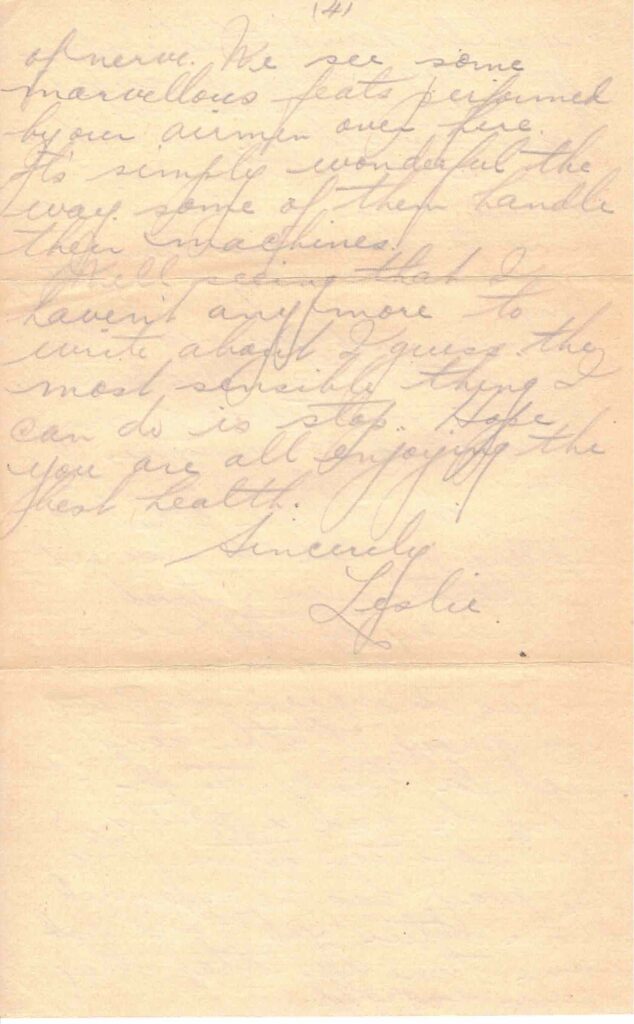 (4)
of nerve. We see some
marvellous feats performed
by our airmen over here.
It's simply wonderful the
way some of them handle
their machines.
Well seeing that I
haven't any more to
write about I guess the
most sensible thing I
can do is stop. Hope
you are all enjoying the
best health.
Sincerely
Leslie